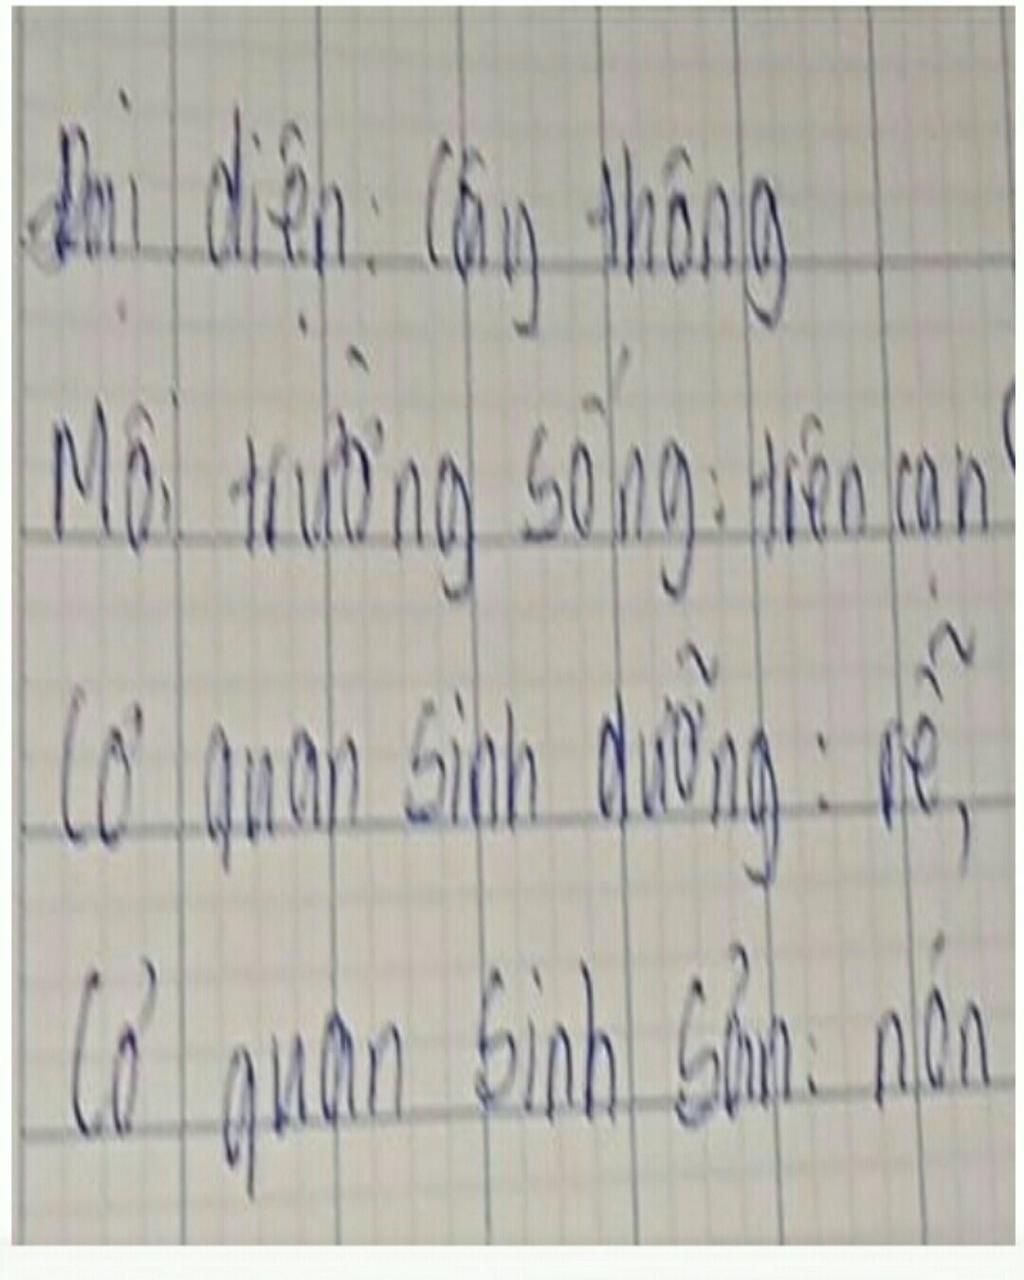 Đại diện: Cây thông
Môi trường sống: trên cạn
Cơ quan sinh dưỡng: rễ,
Cơ quan sinh sản: nón